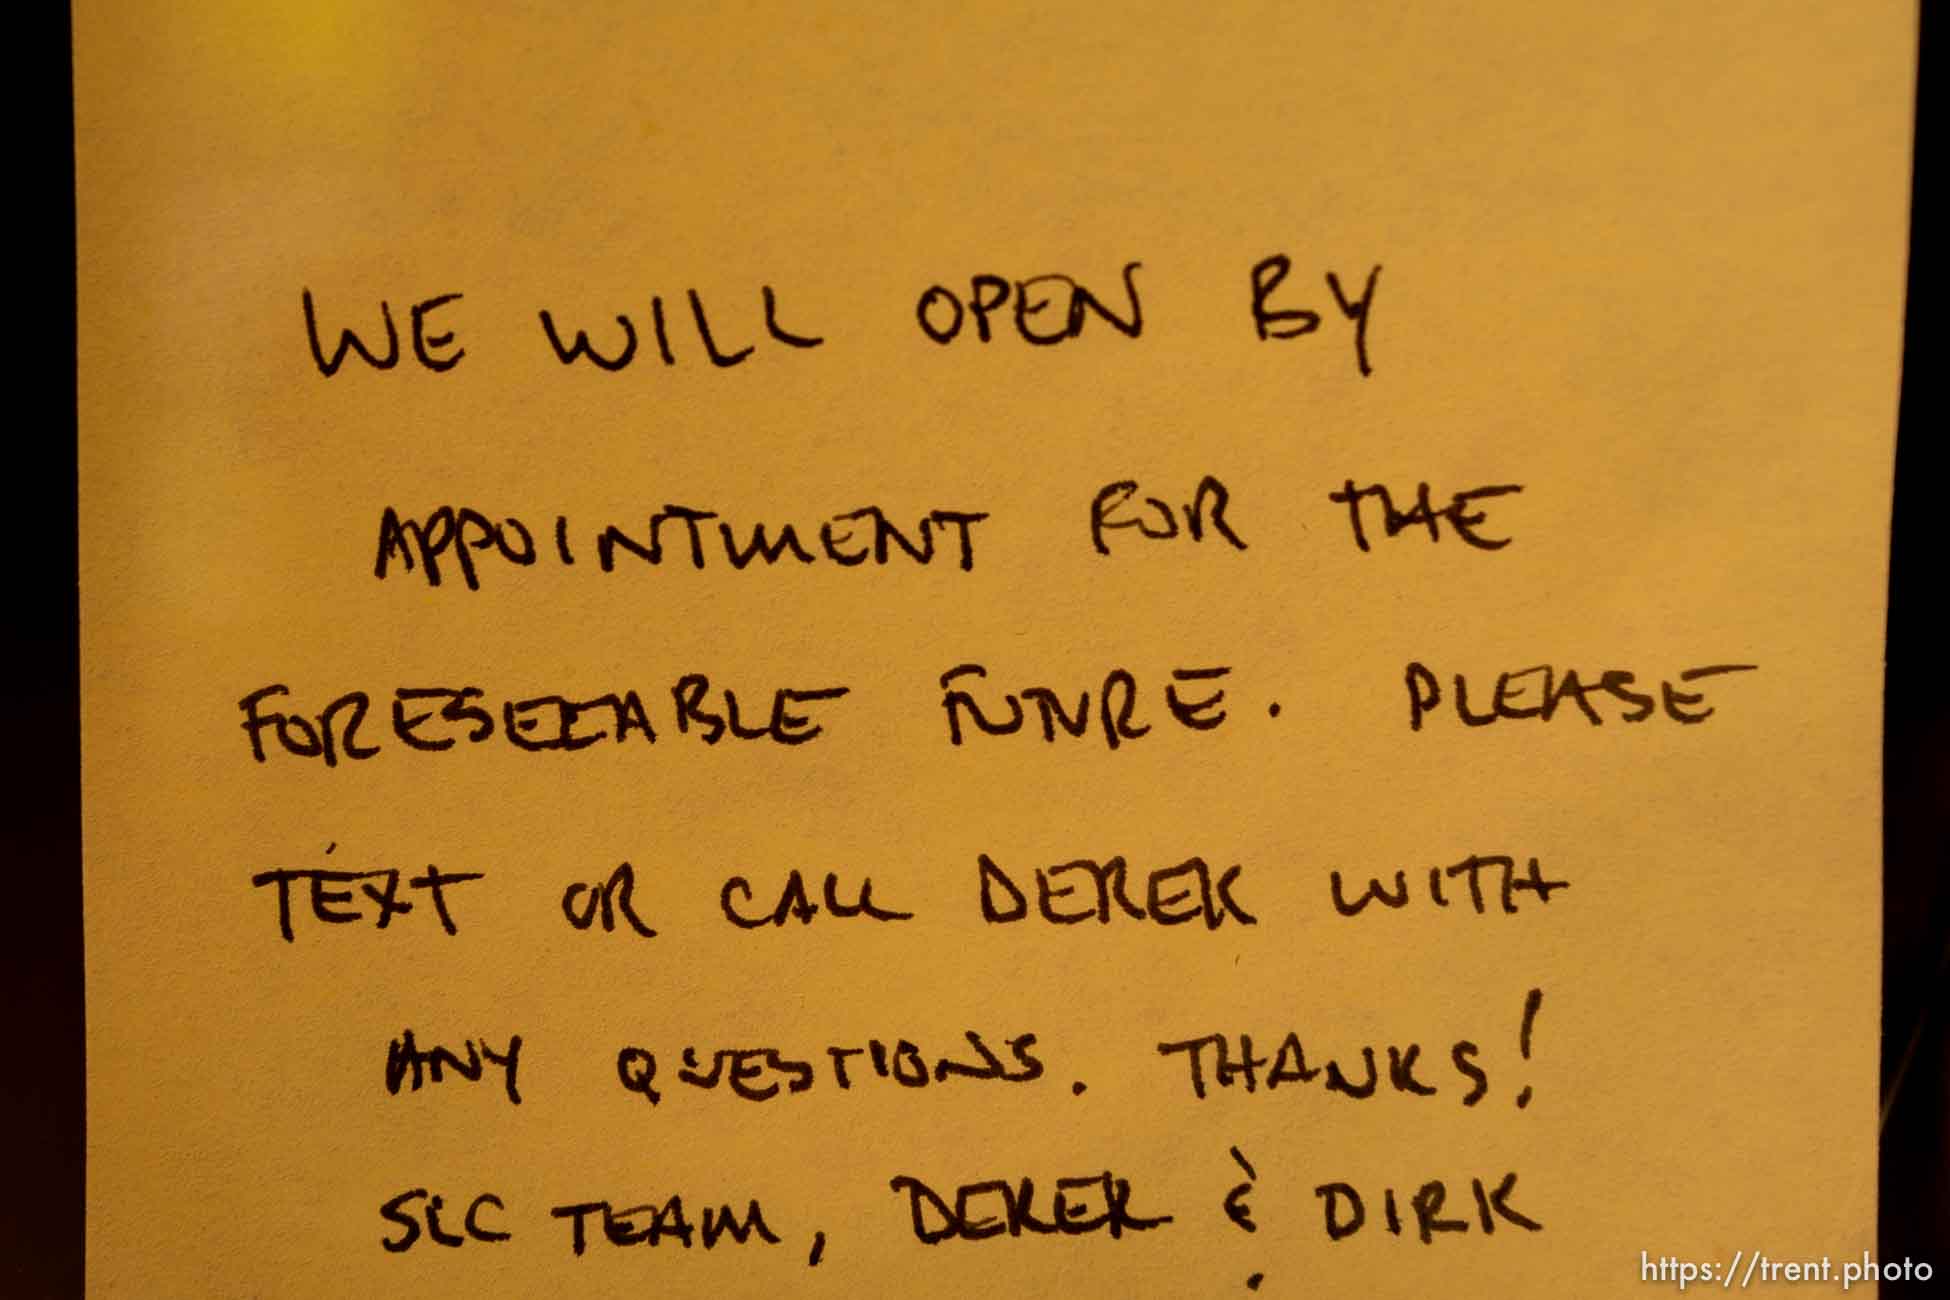 WE WILL OPEN BY
APPOINTMENT FOR THE
FORESEEABLE FUTURE. PLEASE
TEXT OR CALL DEREK WITH
ANY QUESTIONS. THANKS!
SLC TEAM, DEREK & DIRK
https://trent.photo